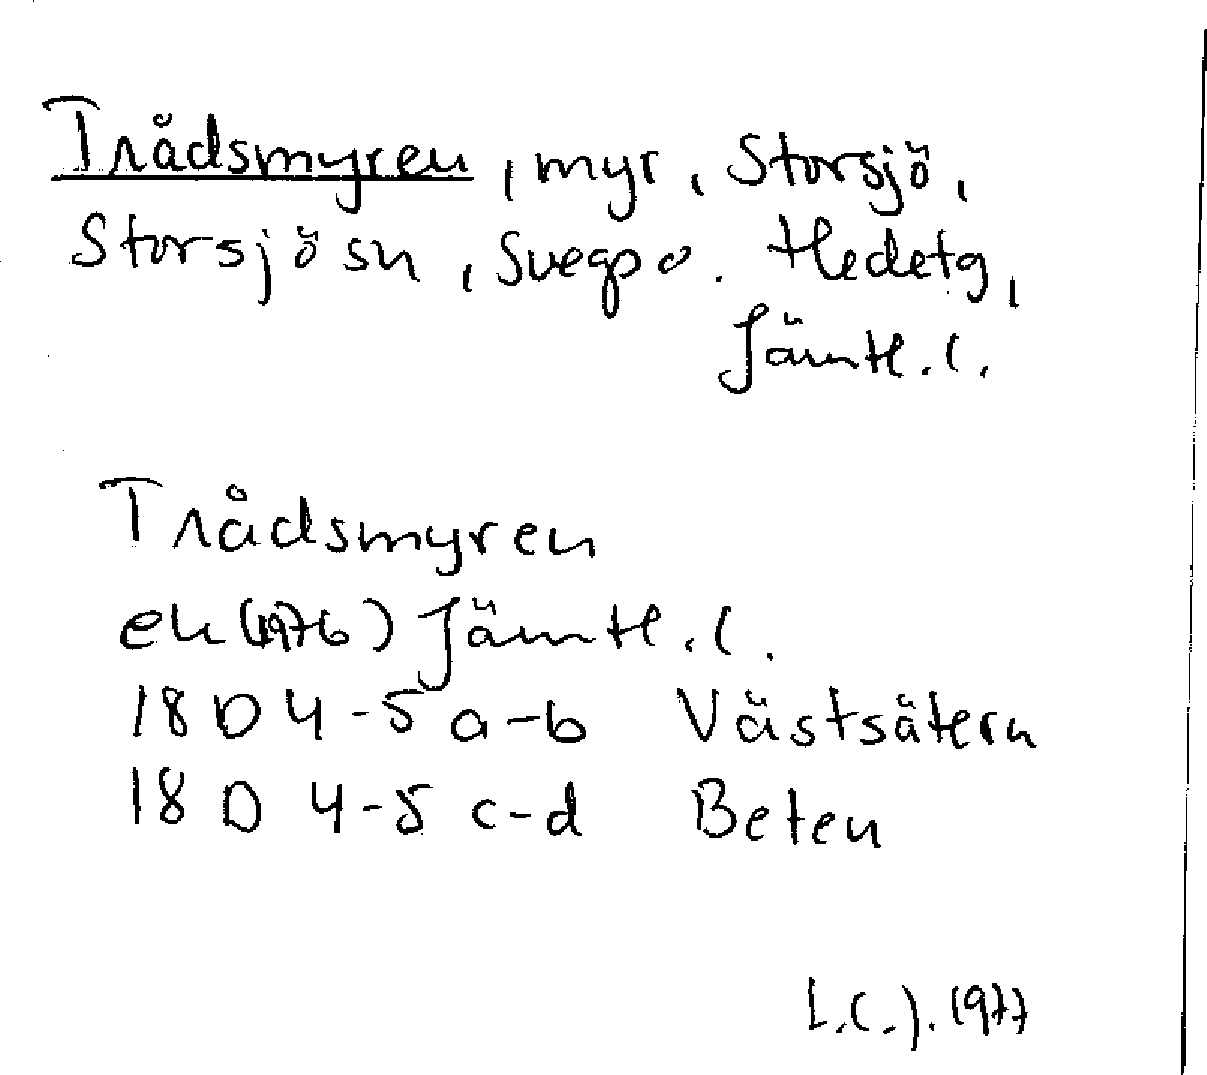 Trådsmyren, myr, Storsjö,
Storsjö sn, Svegpo. Hedetg,
Jämtl.l.
Trådsmyren
ek (1976) Jämtl.l.
18 D 4-5 a-b Västsätern
18 D 4-5 c-d Beten
L.C.J. 1977